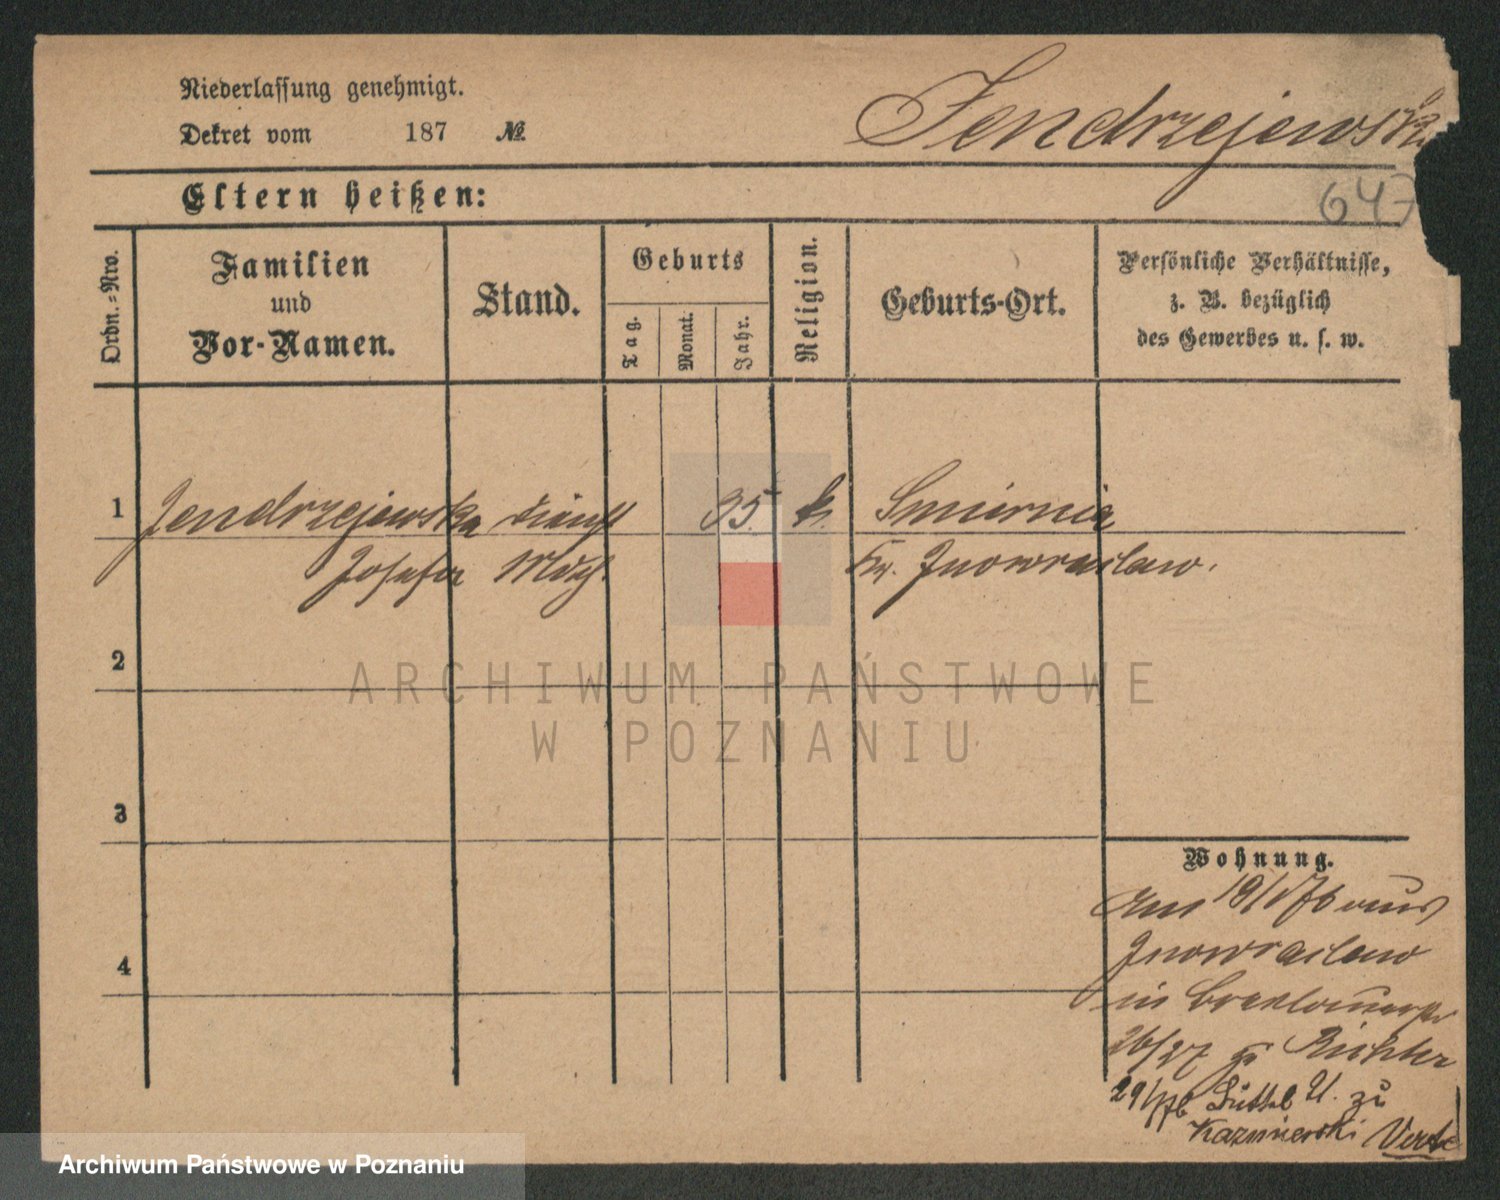 Niederlassung genehmigt.
Dekret vom 187 №
Jendrzejewska
647
Eltern heißen:
Ordn.=Nro.
Familien
und
Vor-Namen.
Stand.
Geburts
Tag.
Monat.
Jahr.
Religion.
Geburts-Ort.
Persönliche Verhältnisse,
z. B. bezüglich
des Gewerbes u. s. w.
1 Jendrzejewska 35. k. Smiernia
Josefa Kr. Inowraclaw.
2
3
4
ARCHIWUM PAŃSTWOWE
W POZNANIU
Wohnung.
Am 19/1 76 aus
Inowraclaw
in Breslauerstr
26/27 zu Richter
29/1 76 U. zu
Kazmierski Verte
Archiwum Państwowe w Poznaniu